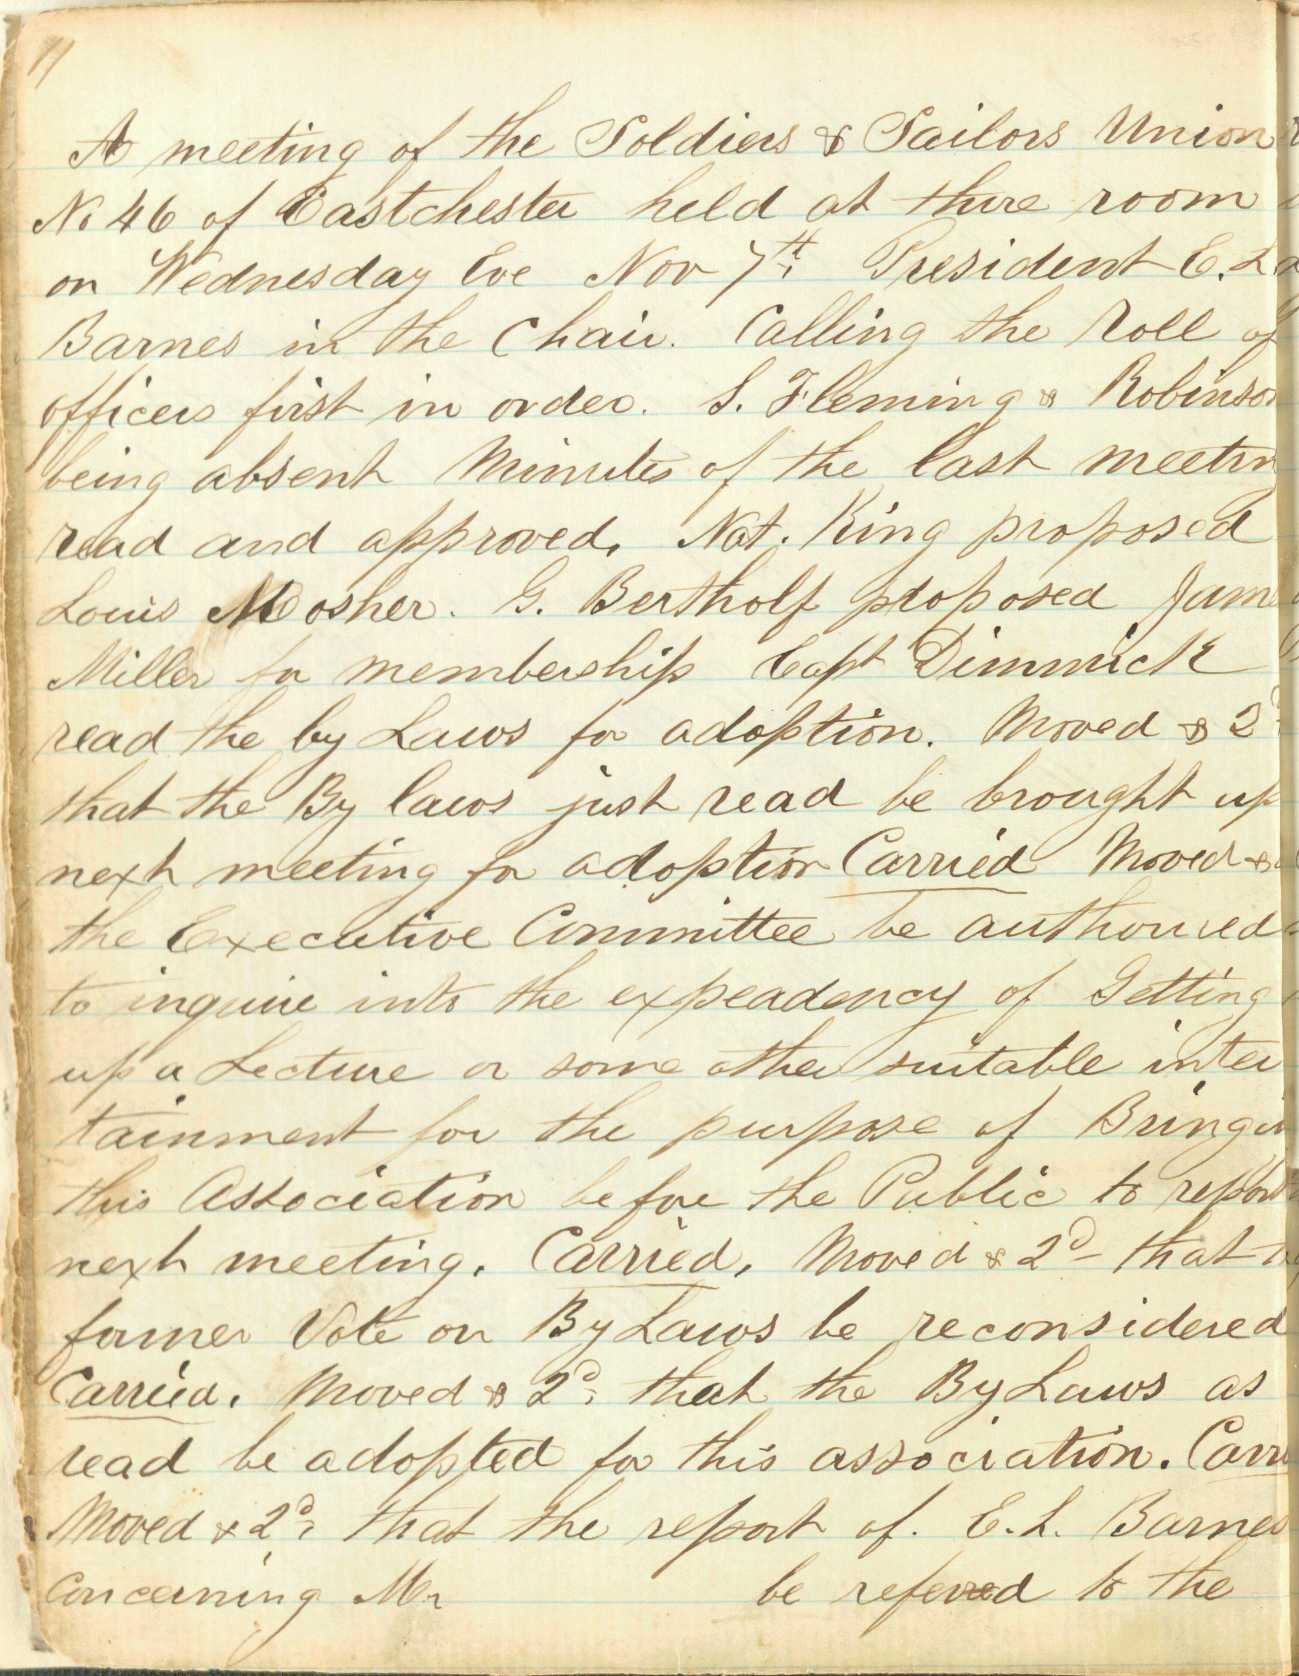 11
A meeting of the Soldiers & Sailors Union
No 46 of Eastchester held at there room
on Wednesday Eve Nov 7th President E. L.
Barnes in the Chair. Calling the roll of
officers first in order. S. Fleming & Robinson
being absent Minutes of the last meetin
read and approved, Nat. King proposed
Louis Mosher. G. Bertholf ploposed Jam
Miller for membership Capt Dimmick
read the by Laws for adoption. Moved & 2d
that the By laws just read be brought up
next meeting for adoption Carried Moved &
the Executive Committee be authorized
to inquire into the expeadency of Getting
up a Lecture or some other suitable inter
tainment for the purpose of Bringin
this Association before the Public to report
next meeting. Carried, Moved & 2d that
former Vote on By Laws be reconsidered
Carried. Moved & 2d that the By Laws as
read be adopted for this association. Carri
Moved & 2d that the report of. E. L. Barnes
Concerning Mr be refered to the